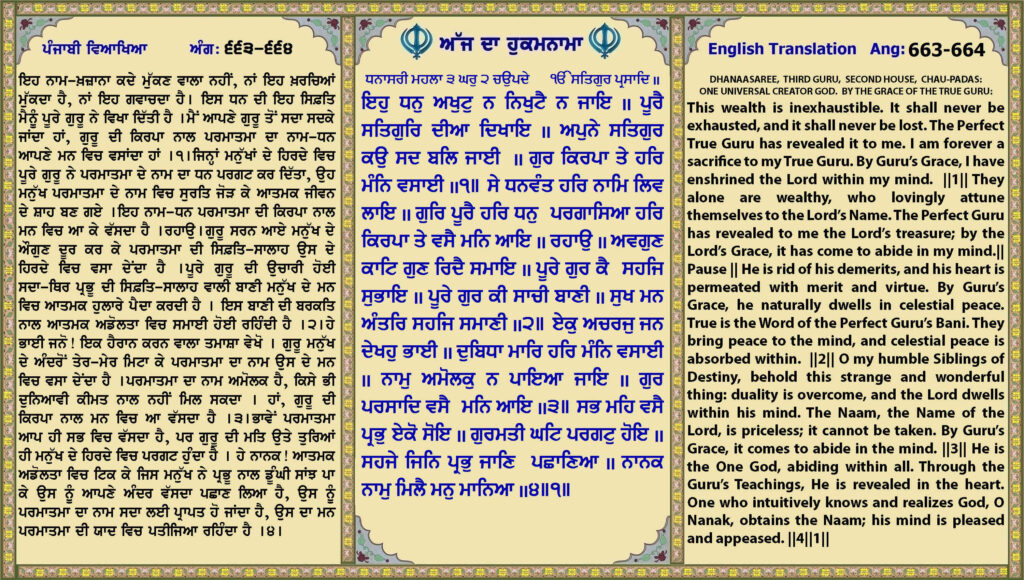 ਪੰਜਾਬੀ ਵਿਆਖਿਆ ਅੰਗ: ੬੬੩-੬੬੪
ਇਹ ਨਾਮ-ਖ਼ਜ਼ਾਨਾ ਕਦੇ ਮੁੱਕਣ ਵਾਲਾ ਨਹੀਂ, ਨਾਂ ਇਹ ਖ਼ਰਚਿਆਂ
ਮੁੱਕਦਾ ਹੈ, ਨਾਂ ਇਹ ਗਵਾਚਦਾ ਹੈ। ਇਸ ਧਨ ਦੀ ਇਹ ਸਿਫ਼ਤਿ
ਮੈਨੂੰ ਪੂਰੇ ਗੁਰੂ ਨੇ ਵਿਖਾ ਦਿੱਤੀ ਹੈ ।ਮੈਂ ਆਪਣੇ ਗੁਰੂ ਤੋਂ ਸਦਾ ਸਦਕੇ
ਜਾਂਦਾ ਹਾਂ, ਗੁਰੂ ਦੀ ਕਿਰਪਾ ਨਾਲ ਪਰਮਾਤਮਾ ਦਾ ਨਾਮ-ਧਨ
ਆਪਣੇ ਮਨ ਵਿਚ ਵਸਾਂਦਾ ਹਾਂ ।੧।ਜਿਨ੍ਹਾਂ ਮਨੁੱਖਾਂ ਦੇ ਹਿਰਦੇ ਵਿਚ
ਪੂਰੇ ਗੁਰੂ ਨੇ ਪਰਮਾਤਮਾ ਦੇ ਨਾਮ ਦਾ ਧਨ ਪਰਗਟ ਕਰ ਦਿੱਤਾ, ਉਹ
ਮਨੁੱਖ ਪਰਮਾਤਮਾ ਦੇ ਨਾਮ ਵਿਚ ਸੁਰਤਿ ਜੋੜ ਕੇ ਆਤਮਕ ਜੀਵਨ
ਦੇ ਸ਼ਾਹ ਬਣ ਗਏ ।ਇਹ ਨਾਮ-ਧਨ ਪਰਮਾਤਮਾ ਦੀ ਕਿਰਪਾ ਨਾਲ
ਮਨ ਵਿਚ ਆ ਕੇ ਵੱਸਦਾ ਹੈ ।ਰਹਾਉ।ਗੁਰੂ ਸਰਨ ਆਏ ਮਨੁੱਖ ਦੇ
ਔਗੁਣ ਦੂਰ ਕਰ ਕੇ ਪਰਮਾਤਮਾ ਦੀ ਸਿਫ਼ਤਿ-ਸਾਲਾਹ ਉਸ ਦੇ
ਹਿਰਦੇ ਵਿਚ ਵਸਾ ਦੇਂਦਾ ਹੈ ।ਪੂਰੇ ਗੁਰੂ ਦੀ ਉਚਾਰੀ ਹੋਈ
ਸਦਾ-ਥਿਰ ਪ੍ਰਭੂ ਦੀ ਸਿਫ਼ਤਿ-ਸਾਲਾਹ ਵਾਲੀ ਬਾਣੀ ਮਨੁੱਖ ਦੇ ਮਨ
ਵਿਚ ਆਤਮਕ ਹੁਲਾਰੇ ਪੈਦਾ ਕਰਦੀ ਹੈ । ਇਸ ਬਾਣੀ ਦੀ ਬਰਕਤਿ
ਨਾਲ ਆਤਮਕ ਅਡੋਲਤਾ ਵਿਚ ਸਮਾਈ ਹੋਈ ਰਹਿੰਦੀ ਹੈ ।੨।ਹੇ
ਭਾਈ ਜਨੋ! ਇਕ ਹੈਰਾਨ ਕਰਨ ਵਾਲਾ ਤਮਾਸ਼ਾ ਵੇਖੋ । ਗੁਰੂ ਮਨੁੱਖ
ਦੇ ਅੰਦਰੋਂ ਤੇਰ-ਮੇਰ ਮਿਟਾ ਕੇ ਪਰਮਾਤਮਾ ਦਾ ਨਾਮ ਉਸ ਦੇ ਮਨ
ਵਿਚ ਵਸਾ ਦੇਂਦਾ ਹੈ ।ਪਰਮਾਤਮਾ ਦਾ ਨਾਮ ਅਮੋਲਕ ਹੈ, ਕਿਸੇ ਭੀ
ਦੁਨਿਆਵੀ ਕੀਮਤ ਨਾਲ ਨਹੀਂ ਮਿਲ ਸਕਦਾ । ਹਾਂ, ਗੁਰੂ ਦੀ
ਕਿਰਪਾ ਨਾਲ ਮਨ ਵਿਚ ਆ ਵੱਸਦਾ ਹੈ ।੩।ਭਾਵੇਂ ਪਰਮਾਤਮਾ
ਆਪ ਹੀ ਸਭ ਵਿਚ ਵੱਸਦਾ ਹੈ, ਪਰ ਗੁਰੂ ਦੀ ਮਤਿ ਉਤੇ ਤੁਰਿਆਂ
ਹੀ ਮਨੁੱਖ ਦੇ ਹਿਰਦੇ ਵਿਚ ਪਰਗਟ ਹੁੰਦਾ ਹੈ । ਹੇ ਨਾਨਕ! ਆਤਮਕ
ਅਡੋਲਤਾ ਵਿਚ ਟਿਕ ਕੇ ਜਿਸ ਮਨੁੱਖ ਨੇ ਪ੍ਰਭੂ ਨਾਲ ਡੂੰਘੀ ਸਾਂਝ ਪਾ
ਕੇ ਉਸ ਨੂੰ ਆਪਣੇ ਅੰਦਰ ਵੱਸਦਾ ਪਛਾਣ ਲਿਆ ਹੈ, ਉਸ ਨੂੰ
ਪਰਮਾਤਮਾ ਦਾ ਨਾਮ ਸਦਾ ਲਈ ਪ੍ਰਾਪਤ ਹੋ ਜਾਂਦਾ ਹੈ, ਉਸ ਦਾ ਮਨ
ਪਰਮਾਤਮਾ ਦੀ ਯਾਦ ਵਿਚ ਪਤੀਜਿਆ ਰਹਿੰਦਾ ਹੈ ।੪।
ਅੱਜ ਦਾ ਹੁਕਮਨਾਮਾ
ਧਨਾਸਰੀ ਮਹਲਾ ੩ ਘਰੁ ੨ ਚਉਪਦੇ ੴ ਸਤਿਗੁਰ ਪ੍ਰਸਾਦਿ ॥
ਇਹੁ ਧਨੁ ਅਖੁਟੁ ਨ ਨਿਖੁਟੈ ਨ ਜਾਇ ॥ ਪੂਰੈ
ਸਤਿਗੁਰਿ ਦੀਆ ਦਿਖਾਇ ॥ ਅਪੁਨੇ ਸਤਿਗੁਰ
ਕਉ ਸਦ ਬਲਿ ਜਾਈ ॥ ਗੁਰ ਕਿਰਪਾ ਤੇ ਹਰਿ
ਮੰਨਿ ਵਸਾਈ ॥੧॥ ਸੇ ਧਨਵੰਤ ਹਰਿ ਨਾਮਿ ਲਿਵ
ਲਾਇ ॥ ਗੁਰਿ ਪੂਰੈ ਹਰਿ ਧਨੁ ਪਰਗਾਸਿਆ ਹਰਿ
ਕਿਰਪਾ ਤੇ ਵਸੈ ਮਨਿ ਆਇ ॥ ਰਹਾਉ ॥ ਅਵਗੁਣ
ਕਾਟਿ ਗੁਣ ਰਿਦੈ ਸਮਾਇ ॥ ਪੂਰੇ ਗੁਰ ਕੈ ਸਹਜਿ
ਸੁਭਾਇ ॥ ਪੂਰੇ ਗੁਰ ਕੀ ਸਾਚੀ ਬਾਣੀ ॥ ਸੁਖ ਮਨ
ਅੰਤਰਿ ਸਹਜਿ ਸਮਾਣੀ ॥੨॥ ਏਕੁ ਅਚਰਜੁ ਜਨ
ਦੇਖਹੁ ਭਾਈ ॥ ਦੁਬਿਧਾ ਮਾਰਿ ਹਰਿ ਮੰਨਿ ਵਸਾਈ
॥ ਨਾਮੁ ਅਮੋਲਕੁ ਨ ਪਾਇਆ ਜਾਇ ॥ ਗੁਰ
ਪਰਸਾਦਿ ਵਸੈ ਮਨਿ ਆਇ ॥੩॥ ਸਭ ਮਹਿ ਵਸੈ
ਪ੍ਰਭੁ ਏਕੋ ਸੋਇ ॥ ਗੁਰਮਤੀ ਘਟਿ ਪਰਗਟੁ ਹੋਇ ॥
ਸਹਜੇ ਜਿਨਿ ਪ੍ਰਭੁ ਜਾਣਿ ਪਛਾਣਿਆ ॥ ਨਾਨਕ
ਨਾਮੁ ਮਿਲੈ ਮਨੁ ਮਾਨਿਆ ॥੪॥੧॥
English Translation Ang: 663-664
DHANAASAREE, THIRD GURU, SECOND HOUSE, CHAU-PADAS:
ONE UNIVERSAL CREATOR GOD. BY THE GRACE OF THE TRUE GURU:
This wealth is inexhaustible. It shall never be
exhausted, and it shall never be lost. The Perfect
True Guru has revealed it to me. I am forever a
sacrifice to my True Guru. By Guru's Grace, I have
enshrined the Lord within my mind. ||1|| They
alone are wealthy, who lovingly attune
themselves to the Lord's Name. The Perfect Guru
has revealed to me the Lord's treasure; by the
Lord's Grace, it has come to abide in my mind.||
Pause || He is rid of his demerits, and his heart is
permeated with merit and virtue. By Guru's
Grace, he naturally dwells in celestial peace.
True is the Word of the Perfect Guru's Bani. They
bring peace to the mind, and celestial peace is
absorbed within. ||2|| O my humble Siblings of
Destiny, behold this strange and wonderful
thing: duality is overcome, and the Lord dwells
within his mind. The Naam, the Name of the
Lord, is priceless; it cannot be taken. By Guru's
Grace, it comes to abide in the mind. ||3|| He is
the One God, abiding within all. Through the
Guru's Teachings, He is revealed in the heart.
One who intuitively knows and realizes God, O
Nanak, obtains the Naam; his mind is pleased
and appeased. ||4||1||